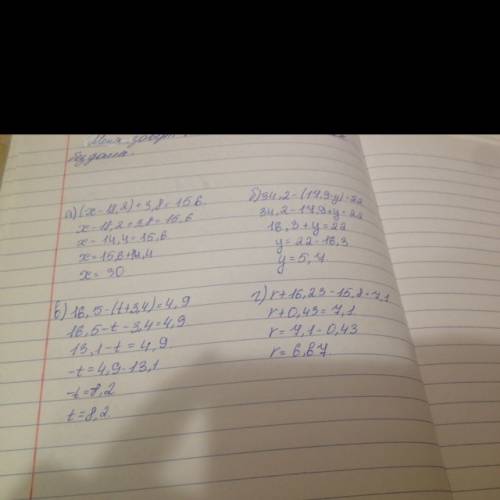 Меня
без дома.
а) (x-18,2)+3,8=15,6.
x-18,2+3,8=15,6
x-14,4=15,6
x=15,6+14,4
x=30
б) 34,2-(17,9-y)=22
34,2-17,9+y=22
16,3+y=22
y=22-16,3
y=5,7
в) 16,5-(t+3,4)=4,9
16,5-t-3,4=4,9
13,1-t=4,9
-t=4,9-13,1
-t=8,2
t=8,2
г) r+16,23-15,8=7,1
r+0,43=7,1
r=7,1-0,43
r=6,67